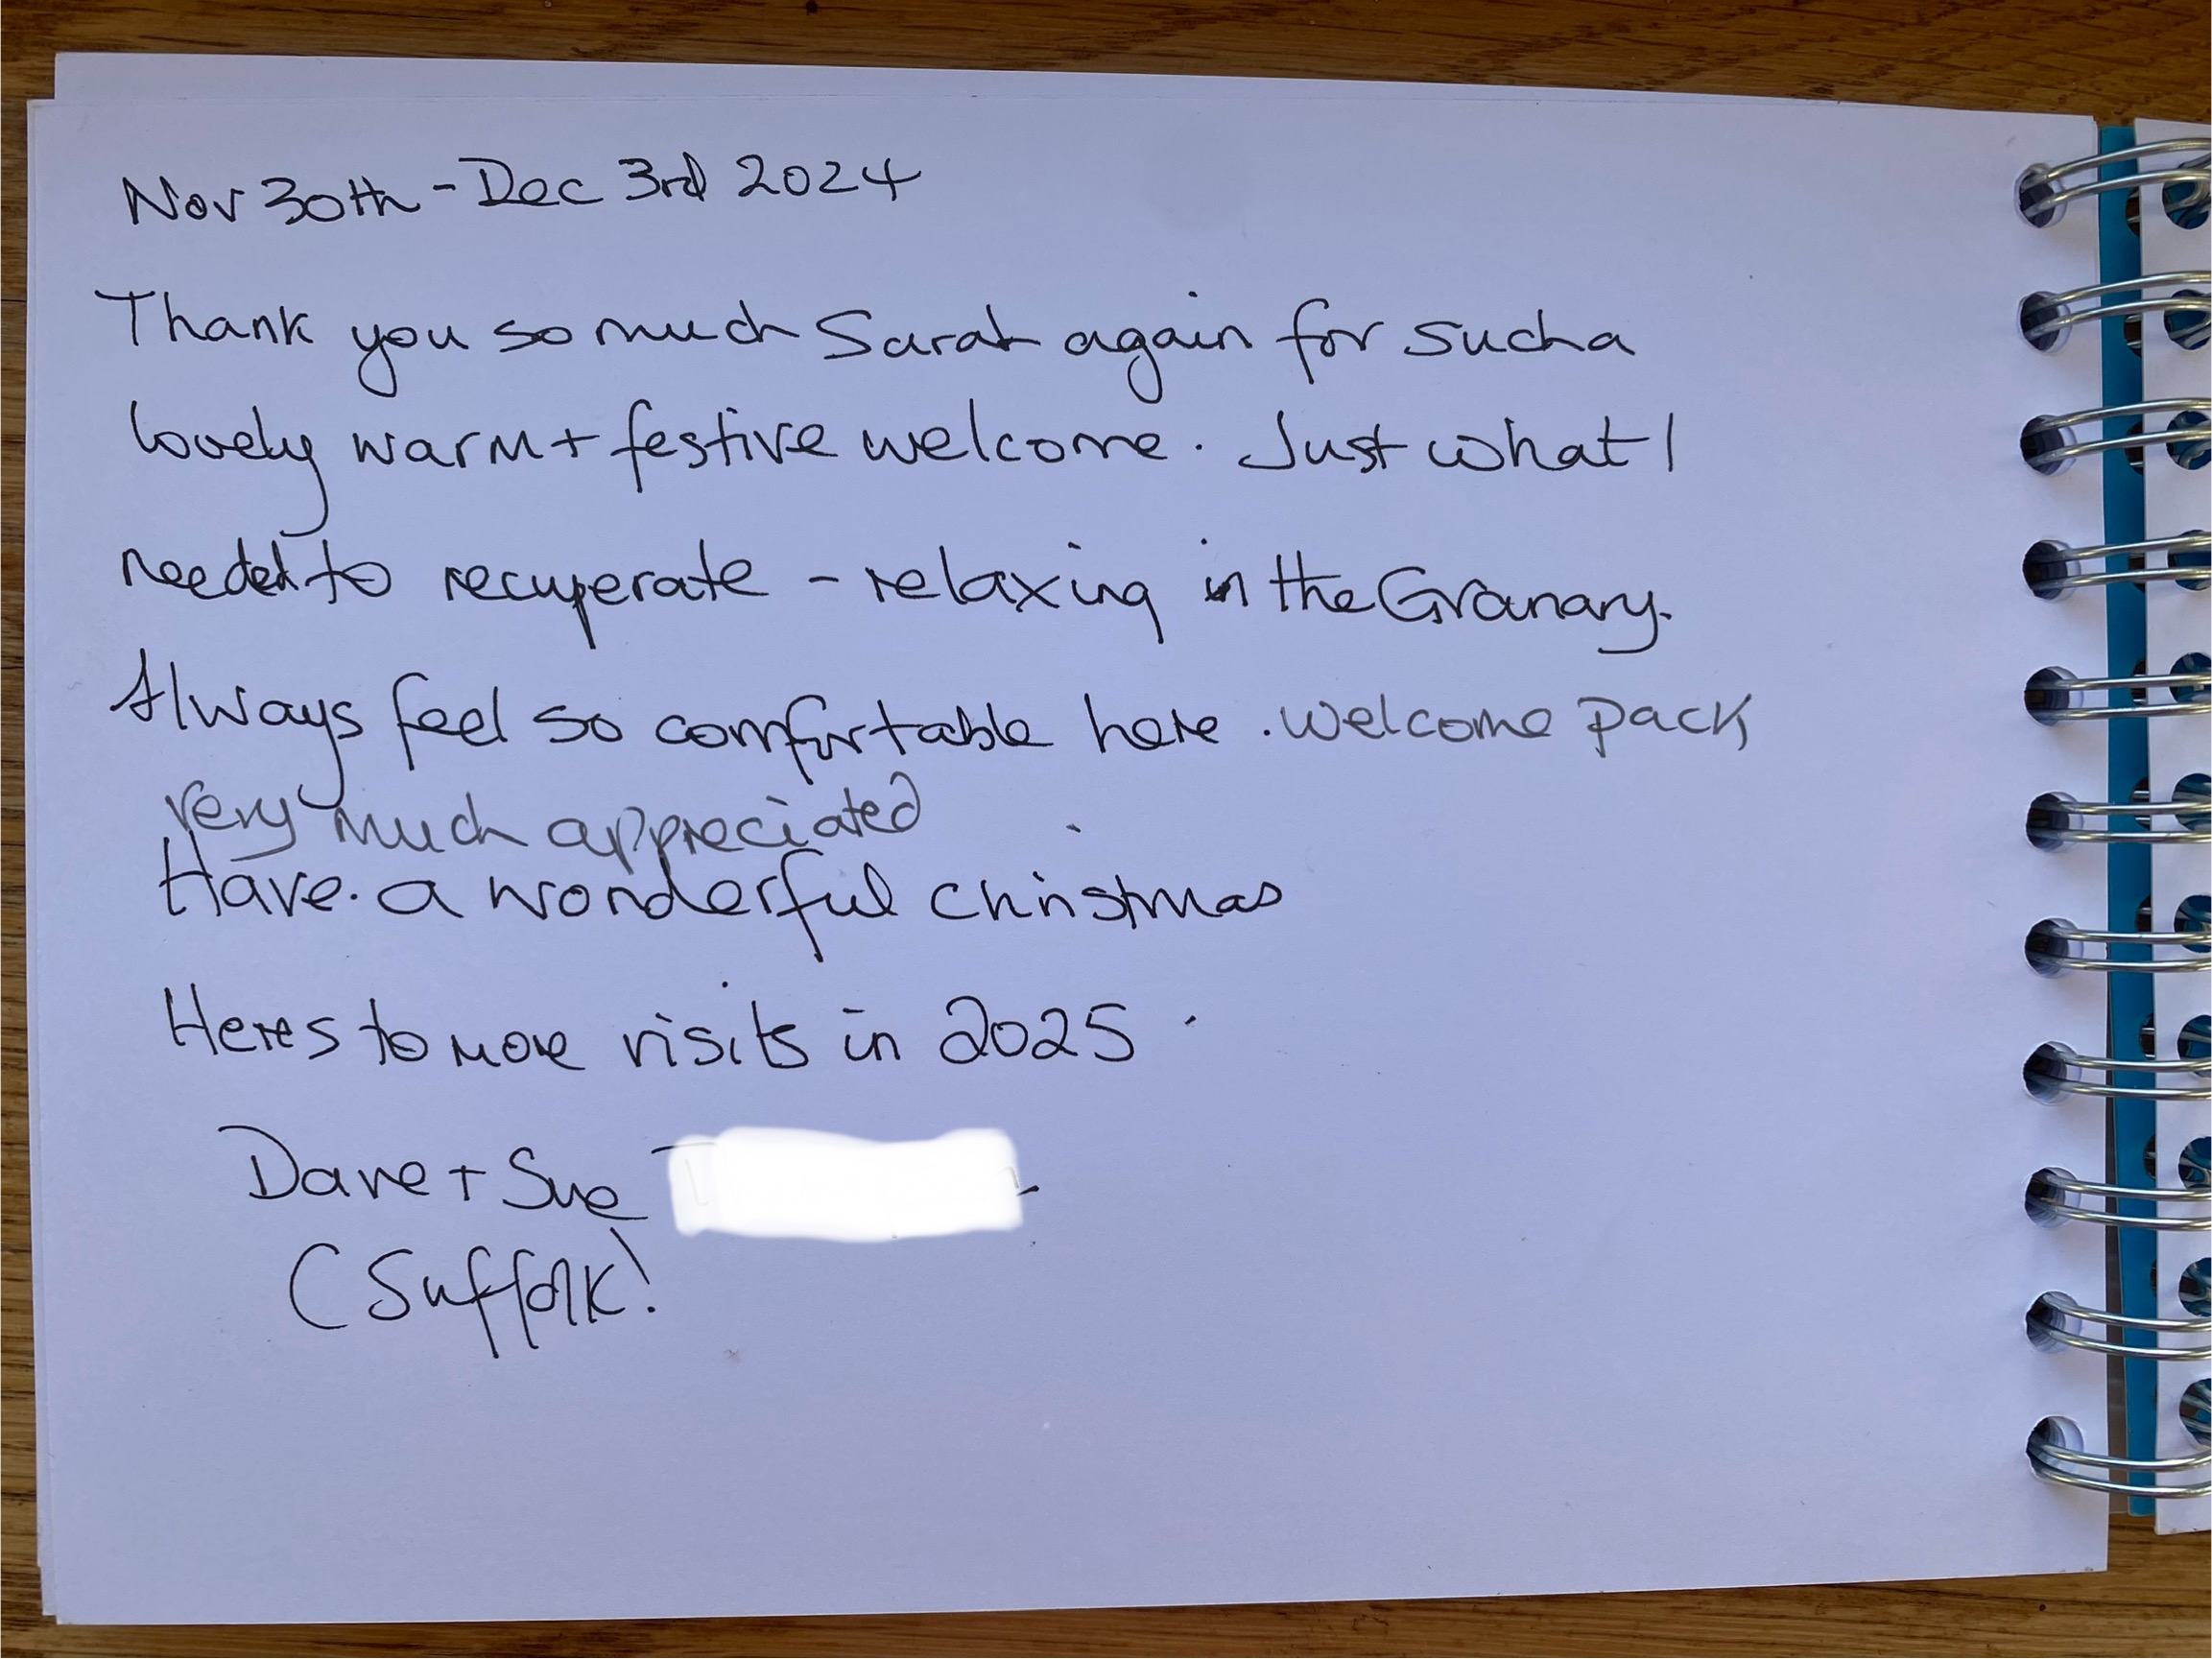 Nov 30th - Dec 3rd 2024
Thank you so much Sarah again for such a
lovely warm + festive welcome. Just what I
needed to recuperate - relaxing in the Granary.
Always feel so comfortable here. Welcome pack
very much appreciated
Have a wonderful Christmas
Heres to more visits in 2025.
Dave + Sue
(Suffolk!